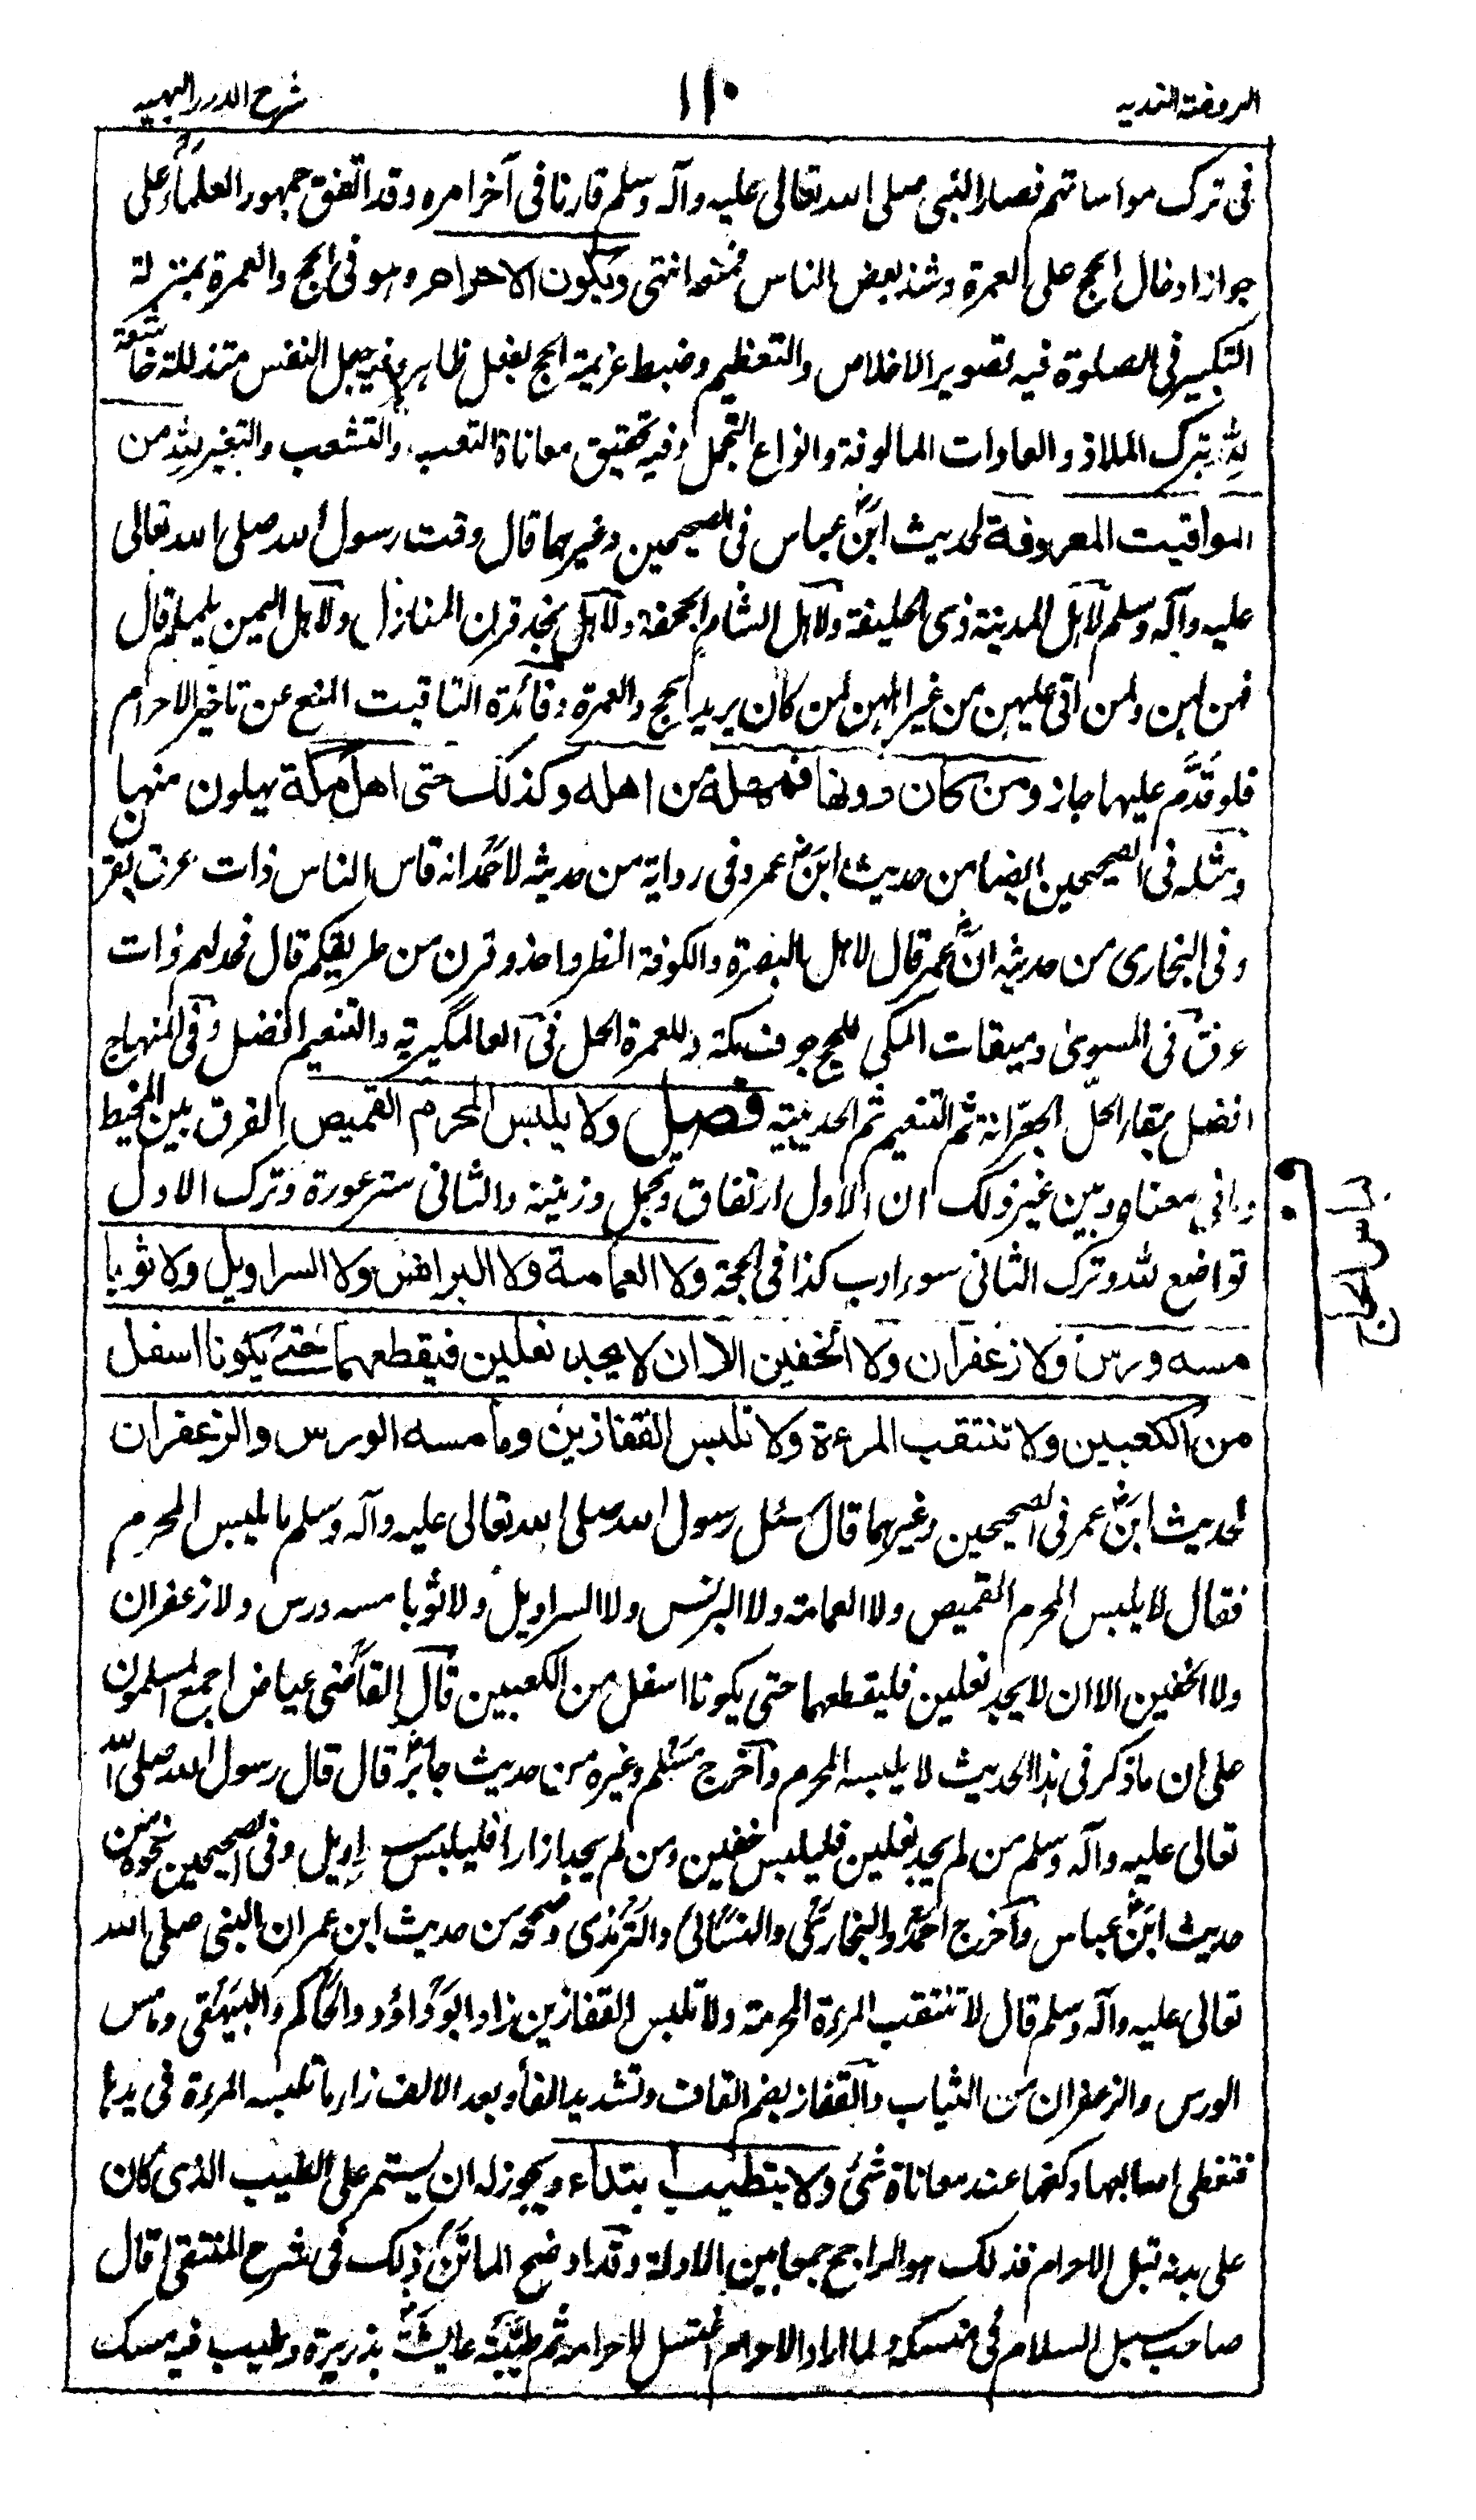 الروضة الندية
١١٠
شرح الدرر البهية
فى ترك مواساتهم فصار النبى صلى الله تعالى عليه وآله وسلم قارنا فى آخر امره وقد اتفق جمهور العلماء على
جواز ادخال الحج على العمرة وشذ بعض الناس فمنعه انتهى ويكون الاحرام وهو فى الحج والعمرة بمنزلة
التكبير فى الصلوة فيه تصوير الاخلاص والتعظيم وضبط عزيمة الحج بفعل ظاهر وفيه جعل النفس متذللة خاشعة
لله بترك الملاذ والعادات المالوفة وانواع التجمل وفيه تحقيق معاناة التعب والتشعب والتغبر لله من
المواقيت المعروفة لحديث ابن عباس فى الصحيحين وغيرهما قال وقت رسول الله صلى الله تعالى
عليه وآله وسلم لاهل المدينة ذى الحليفة ولاهل الشام الجحفة ولاهل نجد قرن المنازل ولاهل اليمن يلملم قال
فهن لهن ولمن اتى عليهن من غير اهلهن لمن كان يريد الحج والعمرة وفائدة التاقيت المنع عن تاخير الاحرام
فلو قدّم عليها جاز ومن كان دونها فمهله من اهله وكذلك حتى اهل مكة يهلون منها
ومثله فى الصحيحين ايضا من حديث ابن عمر وفى رواية من حديثه لاحمد انه قاس الناس ذات عرق بقرن
وفى البخارى من حديثه ان عمر قال لاهل البصرة والكوفة انظروا حذو قرن من طريقكم قال فحد لهم ذات
عرق فى المسوى وميقات المكى للحج جوف مكة وللعمرة الحل فى العالمگيرية والتنعيم افضل وفى المنهاج
افضل بقاع الحل الجعرانة ثم التنعيم ثم الحديبية فصل ولا يلبس المحرم القميص الفرق بين المخيط
وما فى معناه وبين غير ذلك ان الاول ارتفاق وتجمل وزينة والثانى ستر عورة وترك الاول
تواضع لله وترك الثانى سوء ادب كذا فى الحجة ولا العمامة ولا البرانس ولا السراويل ولا ثوبا
مسه ورس ولا زعفران ولا الخفين الا ان لا يجد نعلين فيقطعهما حتى يكونا اسفل
من الكعبين ولا تنتقب المرءة ولا تلبس القفازين وما مسه الورس والزعفران
لحديث ابن عمر فى الصحيحين وغيرهما قال سئل رسول الله صلى الله تعالى عليه وآله وسلم ما يلبس المحرم
فقال لا يلبس المحرم القميص ولا العمامة ولا البرنس ولا السراويل ولا ثوبا مسه ورس ولا زعفران
ولا الخفين الا ان لا يجد نعلين فليقطعهما حتى يكونا اسفل من الكعبين قال القاضى عياض اجمع المسلمون
على ان ما ذكر فى هذا الحديث لا يلبسه المحرم وآخرج مسلم وغيره من حديث جابر قال قال رسول الله صلى الله
تعالى عليه وآله وسلم من لم يجد نعلين فليلبس خفين ومن لم يجد ازارا فليلبس سراويل وفى الصحيحين نحوه من
حديث ابن عباس وآخرج احمد والبخارى والنسائى والترمذى وصححه من حديث ابن عمر ان النبى صلى الله
تعالى عليه وآله وسلم قال لا تنتقب المرءة المحرمة ولا تلبس القفازين زاد ابو داؤد والحاكم والبيهقى وما مس
الورس والزعفران من الثياب والقفاز بضم القاف وتشديد الفاء وبعد الالف زا ما تلبسه المرءة فى يدها
فتغطى اصابعها وكفها عند معاناة شئ ولا يتطيب ابتداء ويجوز له ان يستمر على الطيب الذى كان
على بدنه قبل الاحرام فذلك هو الراجح جمعا بين الادلة وقد اوضح الماتن ذلك فى شرح المنتقى قال
صاحب سبل السلام فى منسكه ولما اراد الاحرام اغتسل لاحرامه ثم طيبته عايشة بذريرة وطيب فيه مسك